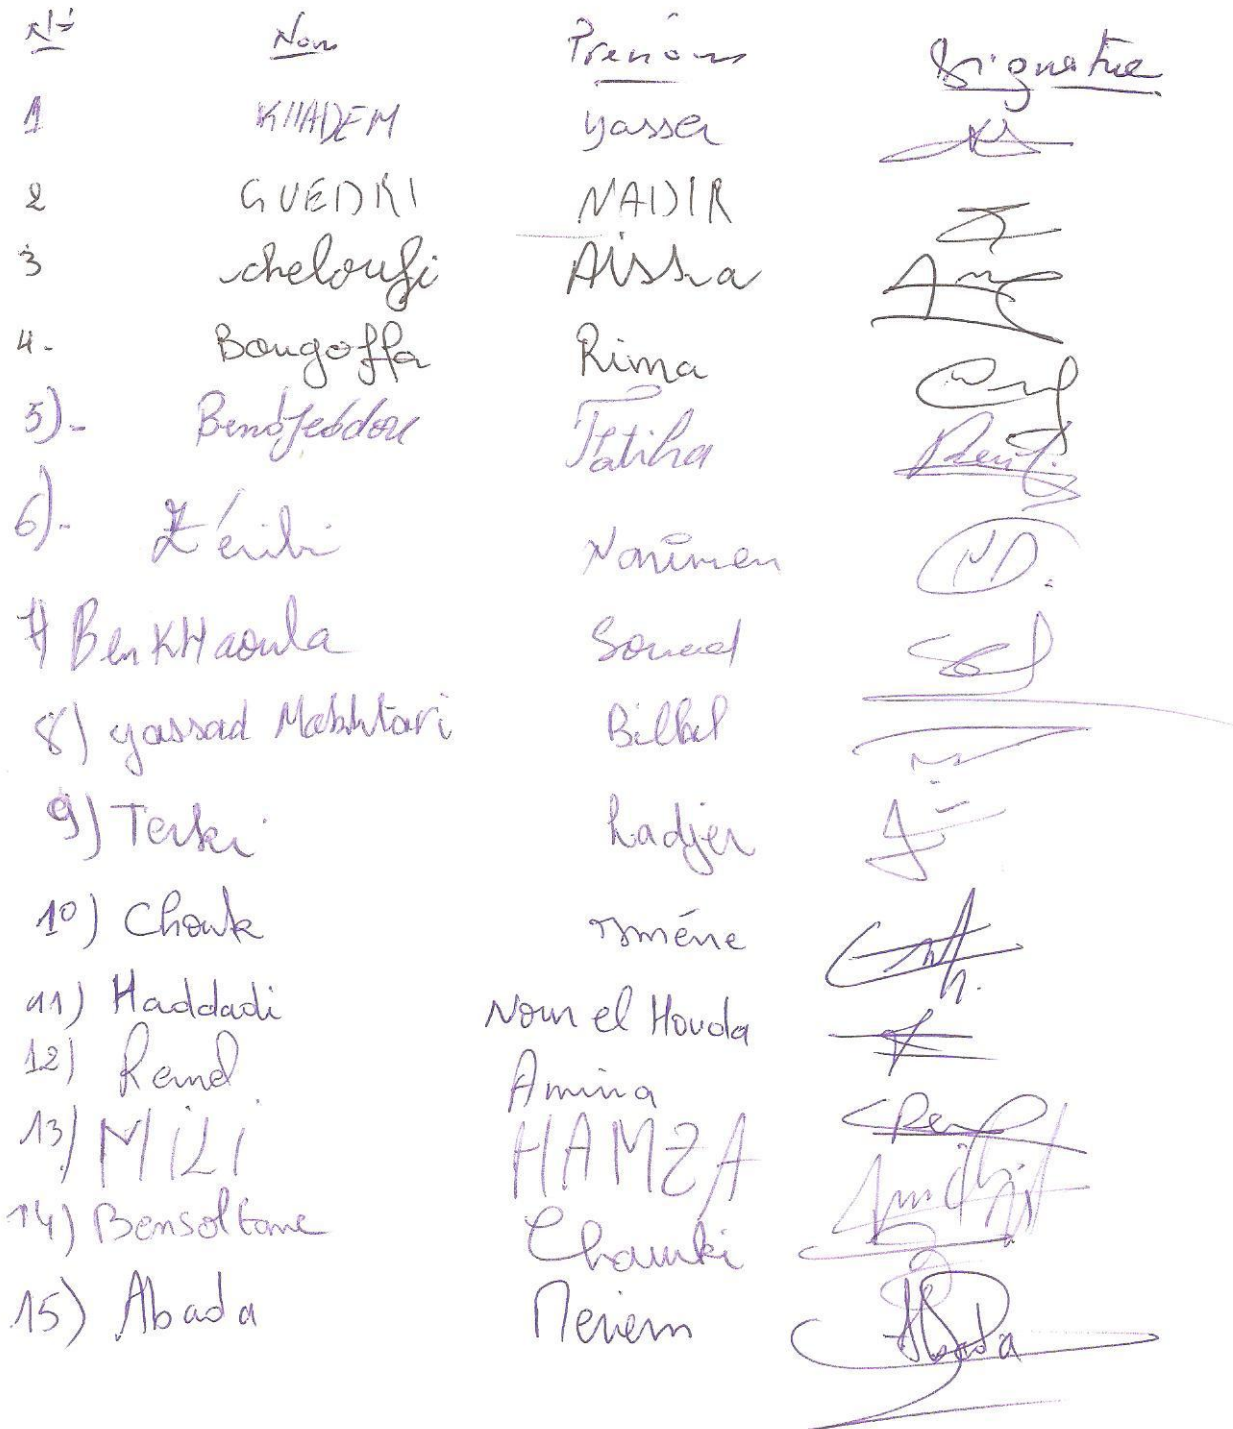 N° Nom Prénom Signature
1 KHADEM Yasser
2 GUEDRI NADIR
3 cheloufi Aissa
4- Bougoffa Rima
5)- Fatiha
6)- Zéribi Narimen
7) BenKHaoula Souad
8) yassad Mokhtari Billel
9) Terki hadjer
10) Chouk Isméne
11) Haddadi Nour el Houda
12) Remd Amina
13) MiLi HAMZA
14) Bensoltane Chawki
15) Abada Meriem
Abada